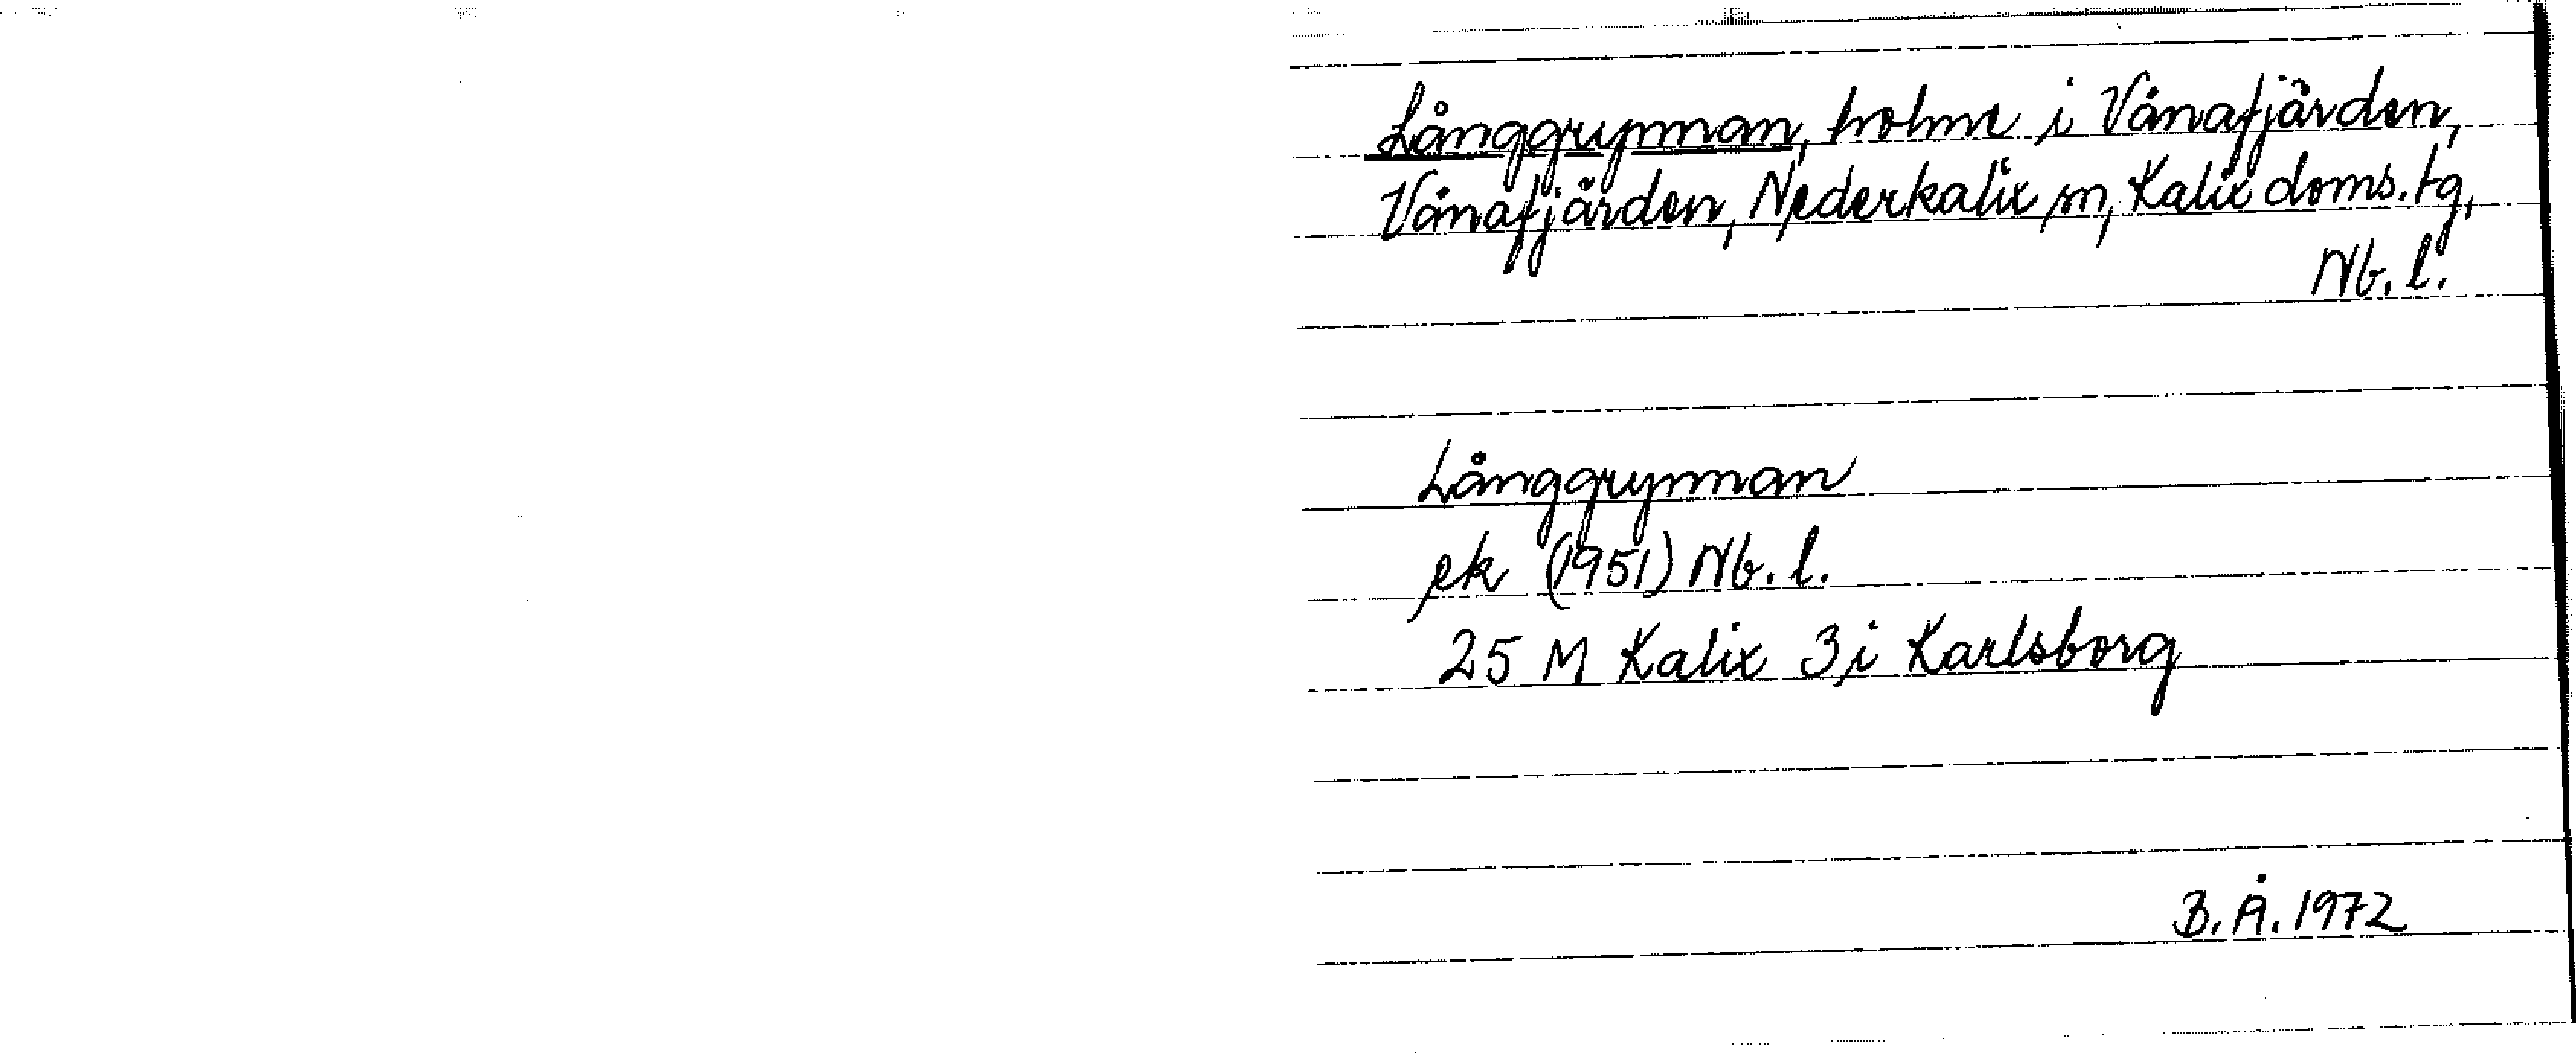 Långgrynnan, holme i Vånafjärden,
Vånafjärden, Nederkalix sn, Kalix doms. tg,
Nb. l.
Långgrynnan
ek (1951) Nb. l.
25 M Kalix 3 i Karlsborg
B. Å. 1972